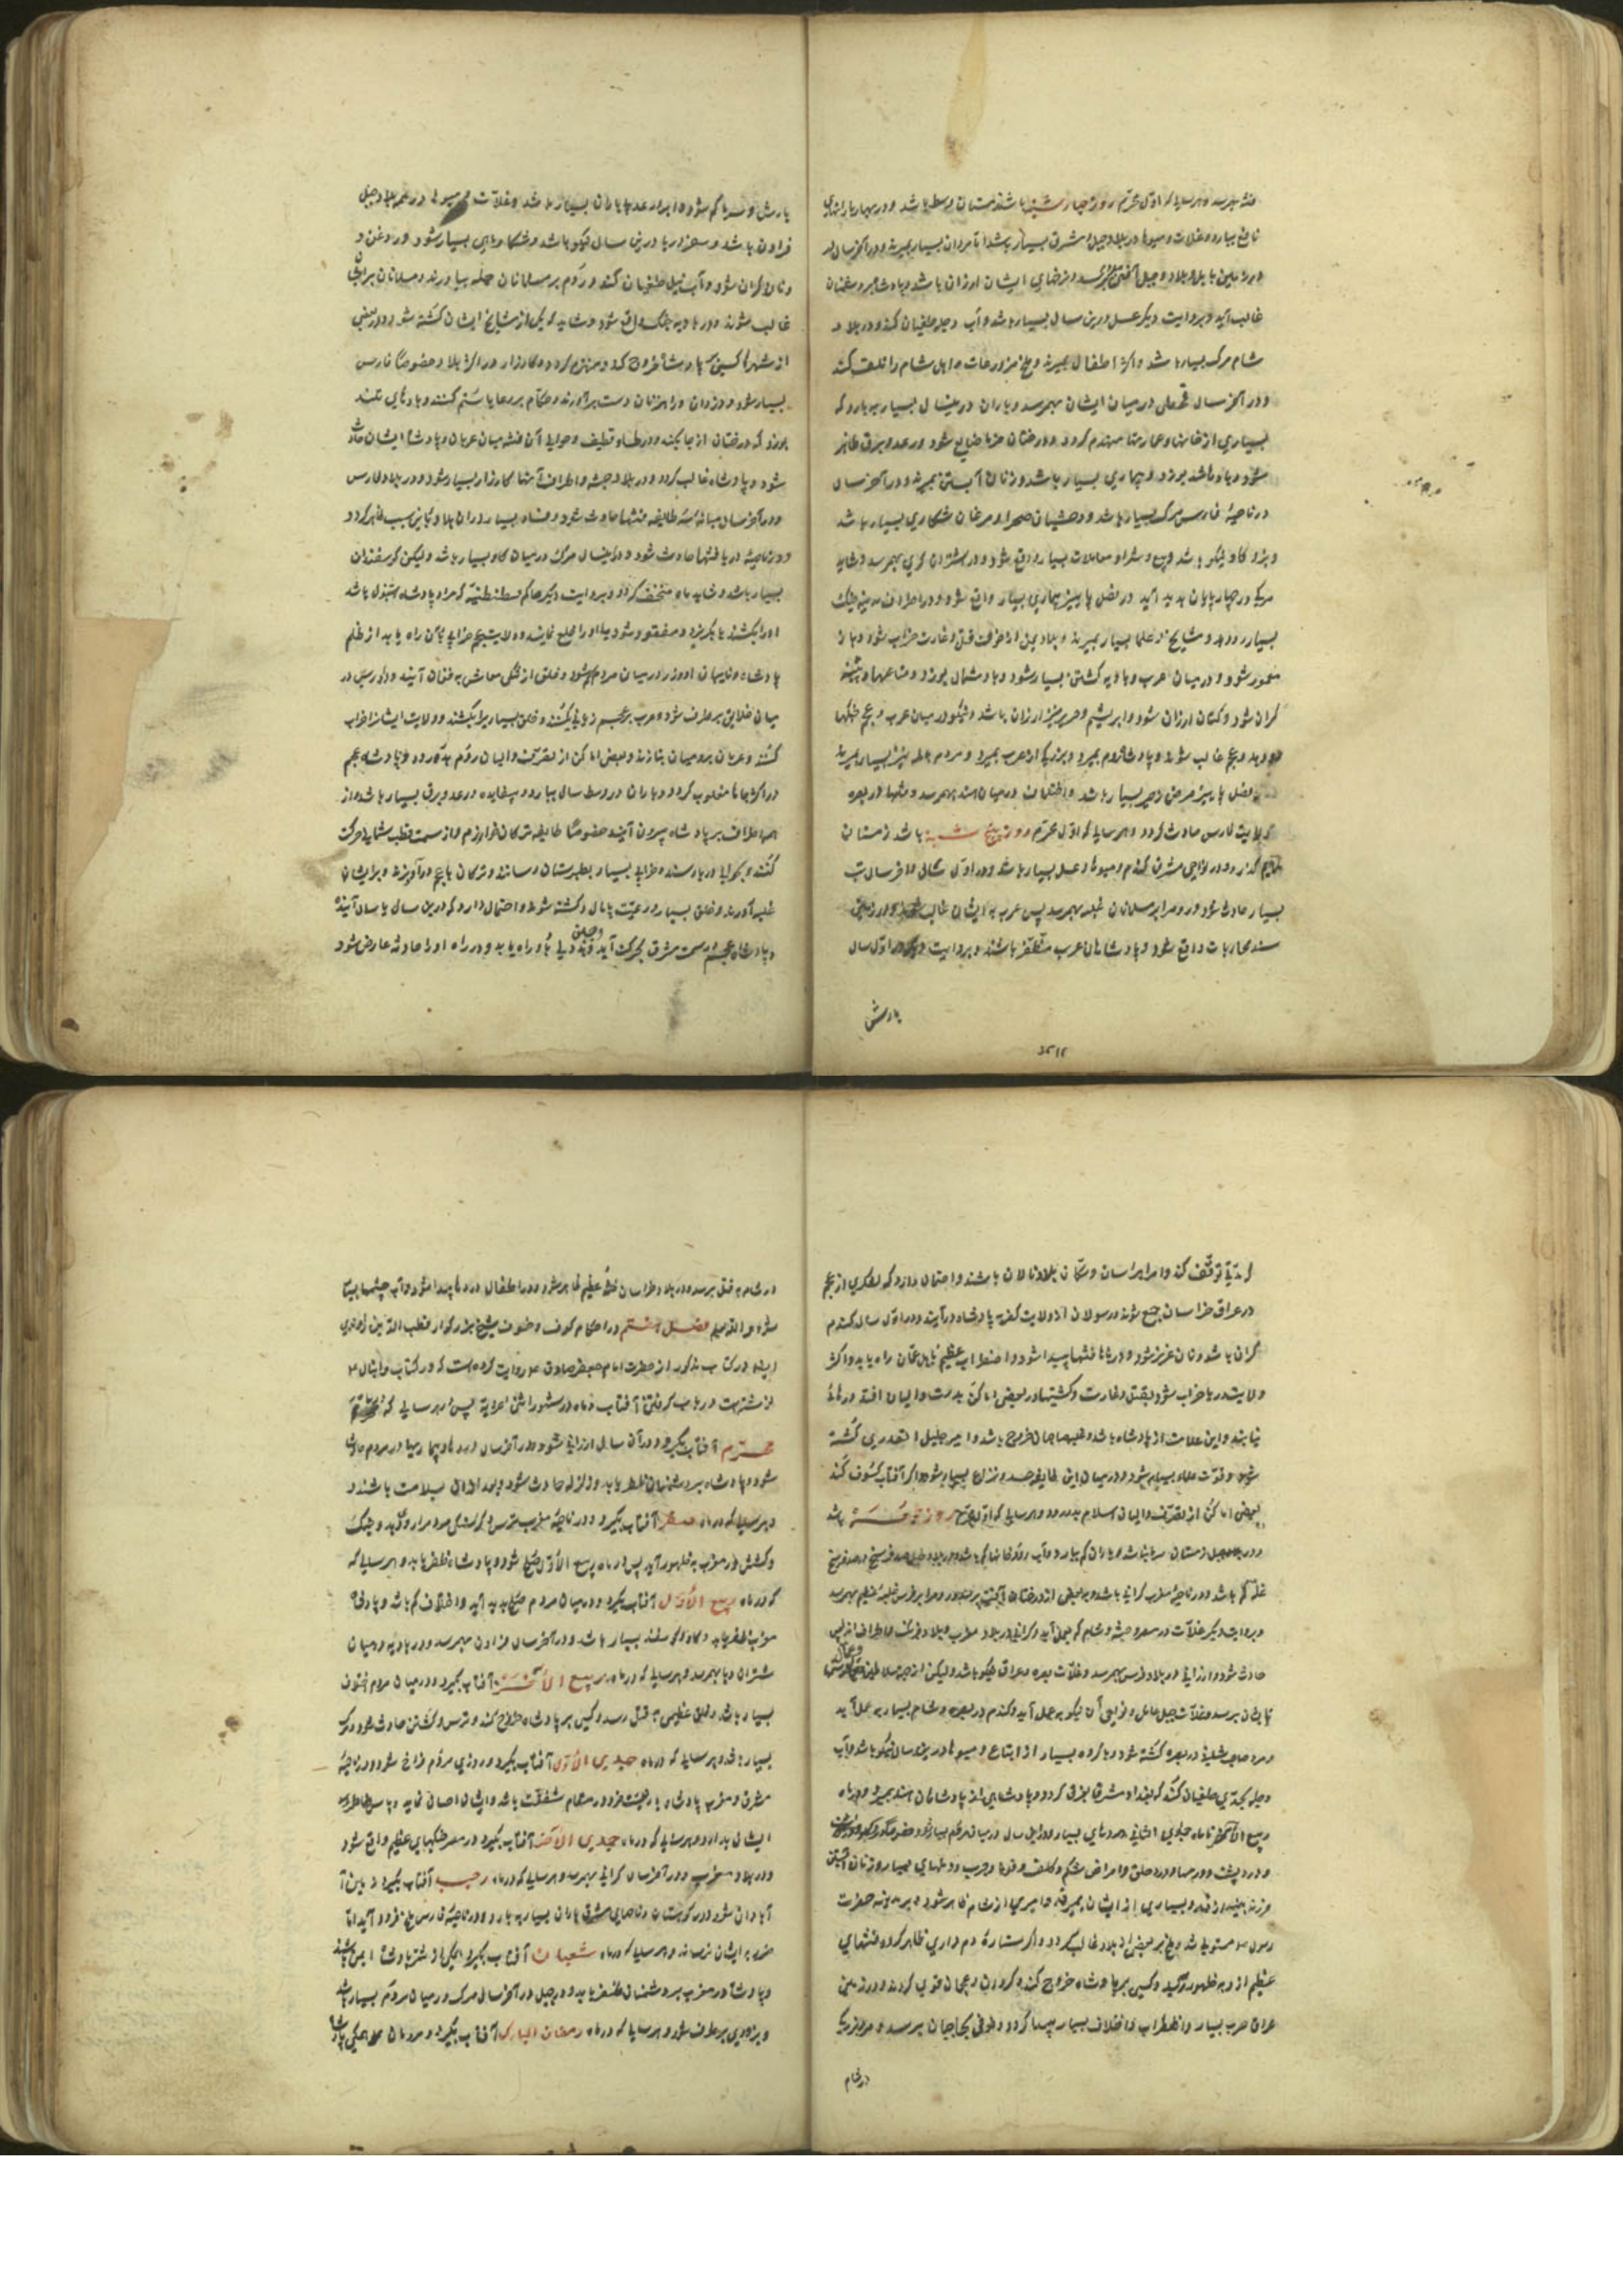 فتنه بهم رسد و هر سالی که اول محرم روز چهارشنبه باشد زمستان وسط باشد و در بهار بارانهای
نافع ببارد و غلات و میوها در بلاد جبل و مشرق بسیار باشد اما مردان بسیار بمیرند و در آخر سال
در زمین بابل و بلاد جبل آفتی رسد و نرخهای ایشان ارزان باشد و پادشاه بر دشمنان
غالب آید و بروایت دیگر عسل درین سال بسیار باشد و آب دجله طغیان کند و در بلاد
شام مرگ بسیار باشد و اکثر اطفال بمیرند و ملخ مزروعات اهل شام را تلف کند
و در آخر سال قحطی در میان ایشان بهم رسد و باران درینسال بسیار ببارد که
بسیاری از خانها و عمارتها منهدم گردد و درختان خرما ضایع شود و رعد و برق ظاهر
شود و باد باشد بوزد و بیماری بسیار باشد و زنان آبستن بمیرند و در آخر سال
در ناحیهٔ فارس مرگ بسیار باشد و وحشیان صحرا و مرغان شکاری بسیار باشد
و بز و گاو نیکو باشد و بیع و شرا و معاملات بسیار واقع شود و در اشتران گری بهم رسد و شاید
مرگی در چهارپایان پدید آید در فصل پاییز بیماری بسیار واقع شود و در اطراف مدینه جنگ
بسیار رود و مشایخ و علما بسیار بمیرند و بلاد یمن از خوف قتل و غارت خراب شود و باز
معمور شود و در میان عرب و بادیه کشتن بسیار شود و باد شمال بوزد و متاعها و پنبه
گران شود و کتان ارزان شود و ابریشم و حریر نیز ارزان باشد و نیکو و در میان عرب و عجم جنگها
رو دهد و عجم غالب شوند و پادشاه روم بمیرد و بزرگی از عرب بمیرد و مردم حله نیز بسیار بمیرند
و در فصل پاییز مرض زحیر بسیار باشد و اختلاف در میان هند بهم رسد و فتنها در بصره
و ولایت فارس حادث گردد و هر سالی که اول محرم روز پنج شنبه باشد زمستان
ملایم گذرد و در نواحی مشرق گندم و میوها و عسل بسیار باشد و در اول سال و آخر سال تب
بسیار حادث شود و روم را بر مسلمانان غلبه بهم رسد پس عرب بر ایشان غالب شوند و در زمین
سند محاربات واقع شود و پادشاهان عرب مظفر باشند و بروایت دیگر در اول سال
بارش
بارش و سرما کم شود و ابر و رعد و باران بسیار باشد و غلات و میوه در همه بلاد جبل
فراوان باشد و سفر دریا درین سال نیکو باشد و شکار ماهی بسیار شود و روغن و
و نان گران شود و آب نیل طغیان کند و روم بر مسلمانان حمله بیاورند و مسلمانان بر ایشان
غالب شوند و در بادیه جنگ واقع شود و شاید که یکی از مشایخ ایشان کشته شود و در بعضی
از شهرها کسی بر پادشاه خروج کند و منهزم گردد و کارزار در اکثر بلاد خصوصا فارس
بسیار شود و دزدان و راهزنان دست برآورند و حکام بر رعایا ستم کنند و بادهای تند
بوزد که درختان از جا بکند و در طساء قطیف و حوالی آن فتنه میان عربان و پادشاه ایشان حادث
شود و پادشاه غالب گردد و در بلاد حبشه و اطراف آنها کارزار بسیار شود و در بلاد فارس
و در آخر سال میانه سه طایفه فتنها حادث شود و فساد بسیار در آن بلاد باین سبب ظاهر گردد
و در ناحیهٔ دریا فتنها حادث شود و درینسال مرگ در میان گاو بسیار باشد و لیکن گوسفندان
بسیار باشد و شاید ماه منخسف گردد و بروایت دیگر حاکم قسطنطنیه که مراد پادشاه استنبول باشد
او را بکشند یا بگریزد و مفقود شود یا او را خلع نمایند و ولایت عجم خرابی بآن راه یابد از ظلم
پادشاه و نایبان او و زر در میان مردم کم شود و خلق از تنگی معاش به فغان آیند و دادرس در
میان خلایق برطرف شود و عرب بر عجم زیادتی کنند و خلق بسیار را بکشند و ولایت ایشان را خراب
کنند و عربان بر رومیان بتازند و بعضی اماکن از تصرف والیان روم بدر رود و پادشاه عجم
در اکثر جاها مغلوب گردد و باران در وسط سال ببارد و بیفایده و رعد و برق بسیار باشد و از
همه اطراف بر پادشاه بیرون آیند خصوصا طایفه ترکان خوارزم و از سمت قطب شمالی حرکت
کنند و بحوالی دریا رسند و خرابی بسیار بطبرستان رسانند و ترکان با عجم درآویزند و بر ایشان
غلبه آورند و خلق بسیار و رعیت پامال و کشته شوند و احتمال دارد که درین سال یا سال آینده
و پادشاه عجم از سمت مشرق بحرکت آید و فتنه و خللی باو راه یابد و در راه او را حادثه عارض شود
که مدتی توقف کند و امرا بر اسان و سکان بلاد نالان باشند و احتمال دارد که لشکری از عجم
در عراق خراسان جمع شوند و رسولان از ولایت کفر به پادشاه درآیند و در اول سال گندم
گران باشد و نان عزیز شود و در راهها فتنها پیدا شود و اضطراب عظیم باهل عمان راه یابد و اکثر
ولایت دریا خراب شود بقتل و غارت و کشتیها در بعضی اماکن بدست والیان افتد و رهائی
نیابند و این علامت از پادشاه باشد و امیر جلیل القدری کشته
شود و قوت علما بسیار شود و در میان این طایفه حسد و نزاع بسیار شود و اگر آفتاب کسوف کند
بعضی اماکن از تصرف والیان اسلام بدر رود و هر سالی که اول محرم روز جمعه باشد
و در بلاد جبل زمستان سرما نباشد و باران کم ببارد و آب رودخانها کم باشد و در بلاد جبل صد فرسخ در صد فرسخ
غله کم باشد و در ناحیهٔ مغرب گرانی باشد و به بعضی از درختان آفتی برسد و روم را بر فرس غلبهٔ عظیم بهم رسد
و بروایت دیگر غلات در مصر و حبشه و شام کم بعمل آید و گرانی در بلاد مغرب و بلاد فرنگ و اطراف اندلس
حادث شود و ارزانی در بلاد فرس بهم رسد و غلات بصره و عراق نیکو باشد و لیکن از جهت سلاطین و عمال
بایشان برسد و غلات جبل عامل و نواحی آن نیکو به عمل آید و گندم در بصره و شام بسیار به عمل آید
و مرد صاحب شمشیر در بصره کشته شود و با گروه بسیار از اتباع و میوها درین سال نیکو باشد و آب
دجله بحدی طغیان کند که بغداد مشرف بغرق گردد و پادشاهی از پادشاهان هند بمیرد و در ماه
ربیع الآخر تا ماه جمادی الثانی دردهای بسیار
و درد پشت و درد پا و درد حلق و امراض شکم و کلف و قوبا و جرب و دملهای بسیار و زنان آبستن
فرزند بیندازند و بسیاری از ایشان بمیرند و امیری از شام ظاهر شود و بر مدینه حضرت
رسول مستولی شود و ملخ بر بعضی از بلاد غالب گردد و اگر ستارهٔ دم داری ظاهر گردد فتنهای
عظیم از او به ظهور آید و کسی بر پادشاه خروج کند و کردان و عجمان قوی گردند و در زمین
عراق حرب بسیار و اضطراب و اختلاف بسیار پیدا گردد و خوفی بحاجیان برسد و مرد بزرگی
در شام
در شام به قتل برسد و در بلاد خراسان فتنهٔ عظیم ظاهر شود و در اطفال دردها پیدا شود و آب چشمها بسیار
شود و الله یعلم فصل هشتم در احکام کسوف و خسوف شیخ بزرگوار قطب الدین راوندی
ایضا در کتاب مذکور از حضرت امام جعفر صادق روایت کرده است که در کتاب دانیال
نوشته است در باب گرفتن آفتاب و ماه در شهور اثنی عشریه پس در هر سالی که در ماه
محرم آفتاب بگیرد در آن سال ارزانی شود و در آخر سال دردها و بیماریها در مردم حادث
شود و پادشاه بر دشمنان ظفر یابد و زلزله حادث شود و بعد از آن سلامت باشند و
و هر سالی که در ماه صفر آفتاب بگیرد و در ناحیهٔ مغرب ترس و گرسنگی مردم را رو دهد و جنگ
و کشش در مغرب به ظهور آید پس در ماه ربیع الاول صلح شود و پادشاه ظفر یابد و هر سالی که
که در ماه ربیع الاول آفتاب بگیرد و در میان مردم صلح پدید آید و اختلاف کم باشد و پادشاه
مغرب ظفر یابد و گاو و گوسفند بسیار باشد و در آخر سال فراوان بهم رسد و در بادیه در میان
شتران وبا بهم رسد و هر سالی که در ماه ربیع الآخر آفتاب بگیرد و در میان مردم اختلاف
بسیار باشد و خلق عظیمی به قتل رسد و کسی بر پادشاه خروج کند و ترس و کشتن حادث شود و مرگ
بسیار باشد و هر سالی که در ماه جمادی الاول آفتاب بگیرد و روزی مردم فراخ شود و در ناحیهٔ
مشرق و مغرب پادشاه با رعیت خود در مقام شفقت باشد و بایشان احسان نماید و پاس خاطر
ایشان بدارد و هر سالی که در ماه جمادی الآخر آفتاب بگیرد در مصر جنگهای عظیم واقع شود
و در بلاد مغرب و در آخر سال گرانی بهم رسد و هر سالی که در ماه رجب آفتاب بگیرد زمین
آبادان شود و در کوهستان و نواحی مشرق باران بسیار ببارد و در ناحیهٔ فارس ملخ فرود آید اما
ضرر به ایشان نرساند و هر سالی که در ماه شعبان آفتاب بگیرد
و پادشاه در مغرب بر دشمنان ظفر یابد و در جبل در آخر سال مرگ در میان مردم بسیار باشد
و بزودی برطرف شود و هر سالی که در ماه رمضان المبارک آفتاب بگیرد و مردمان